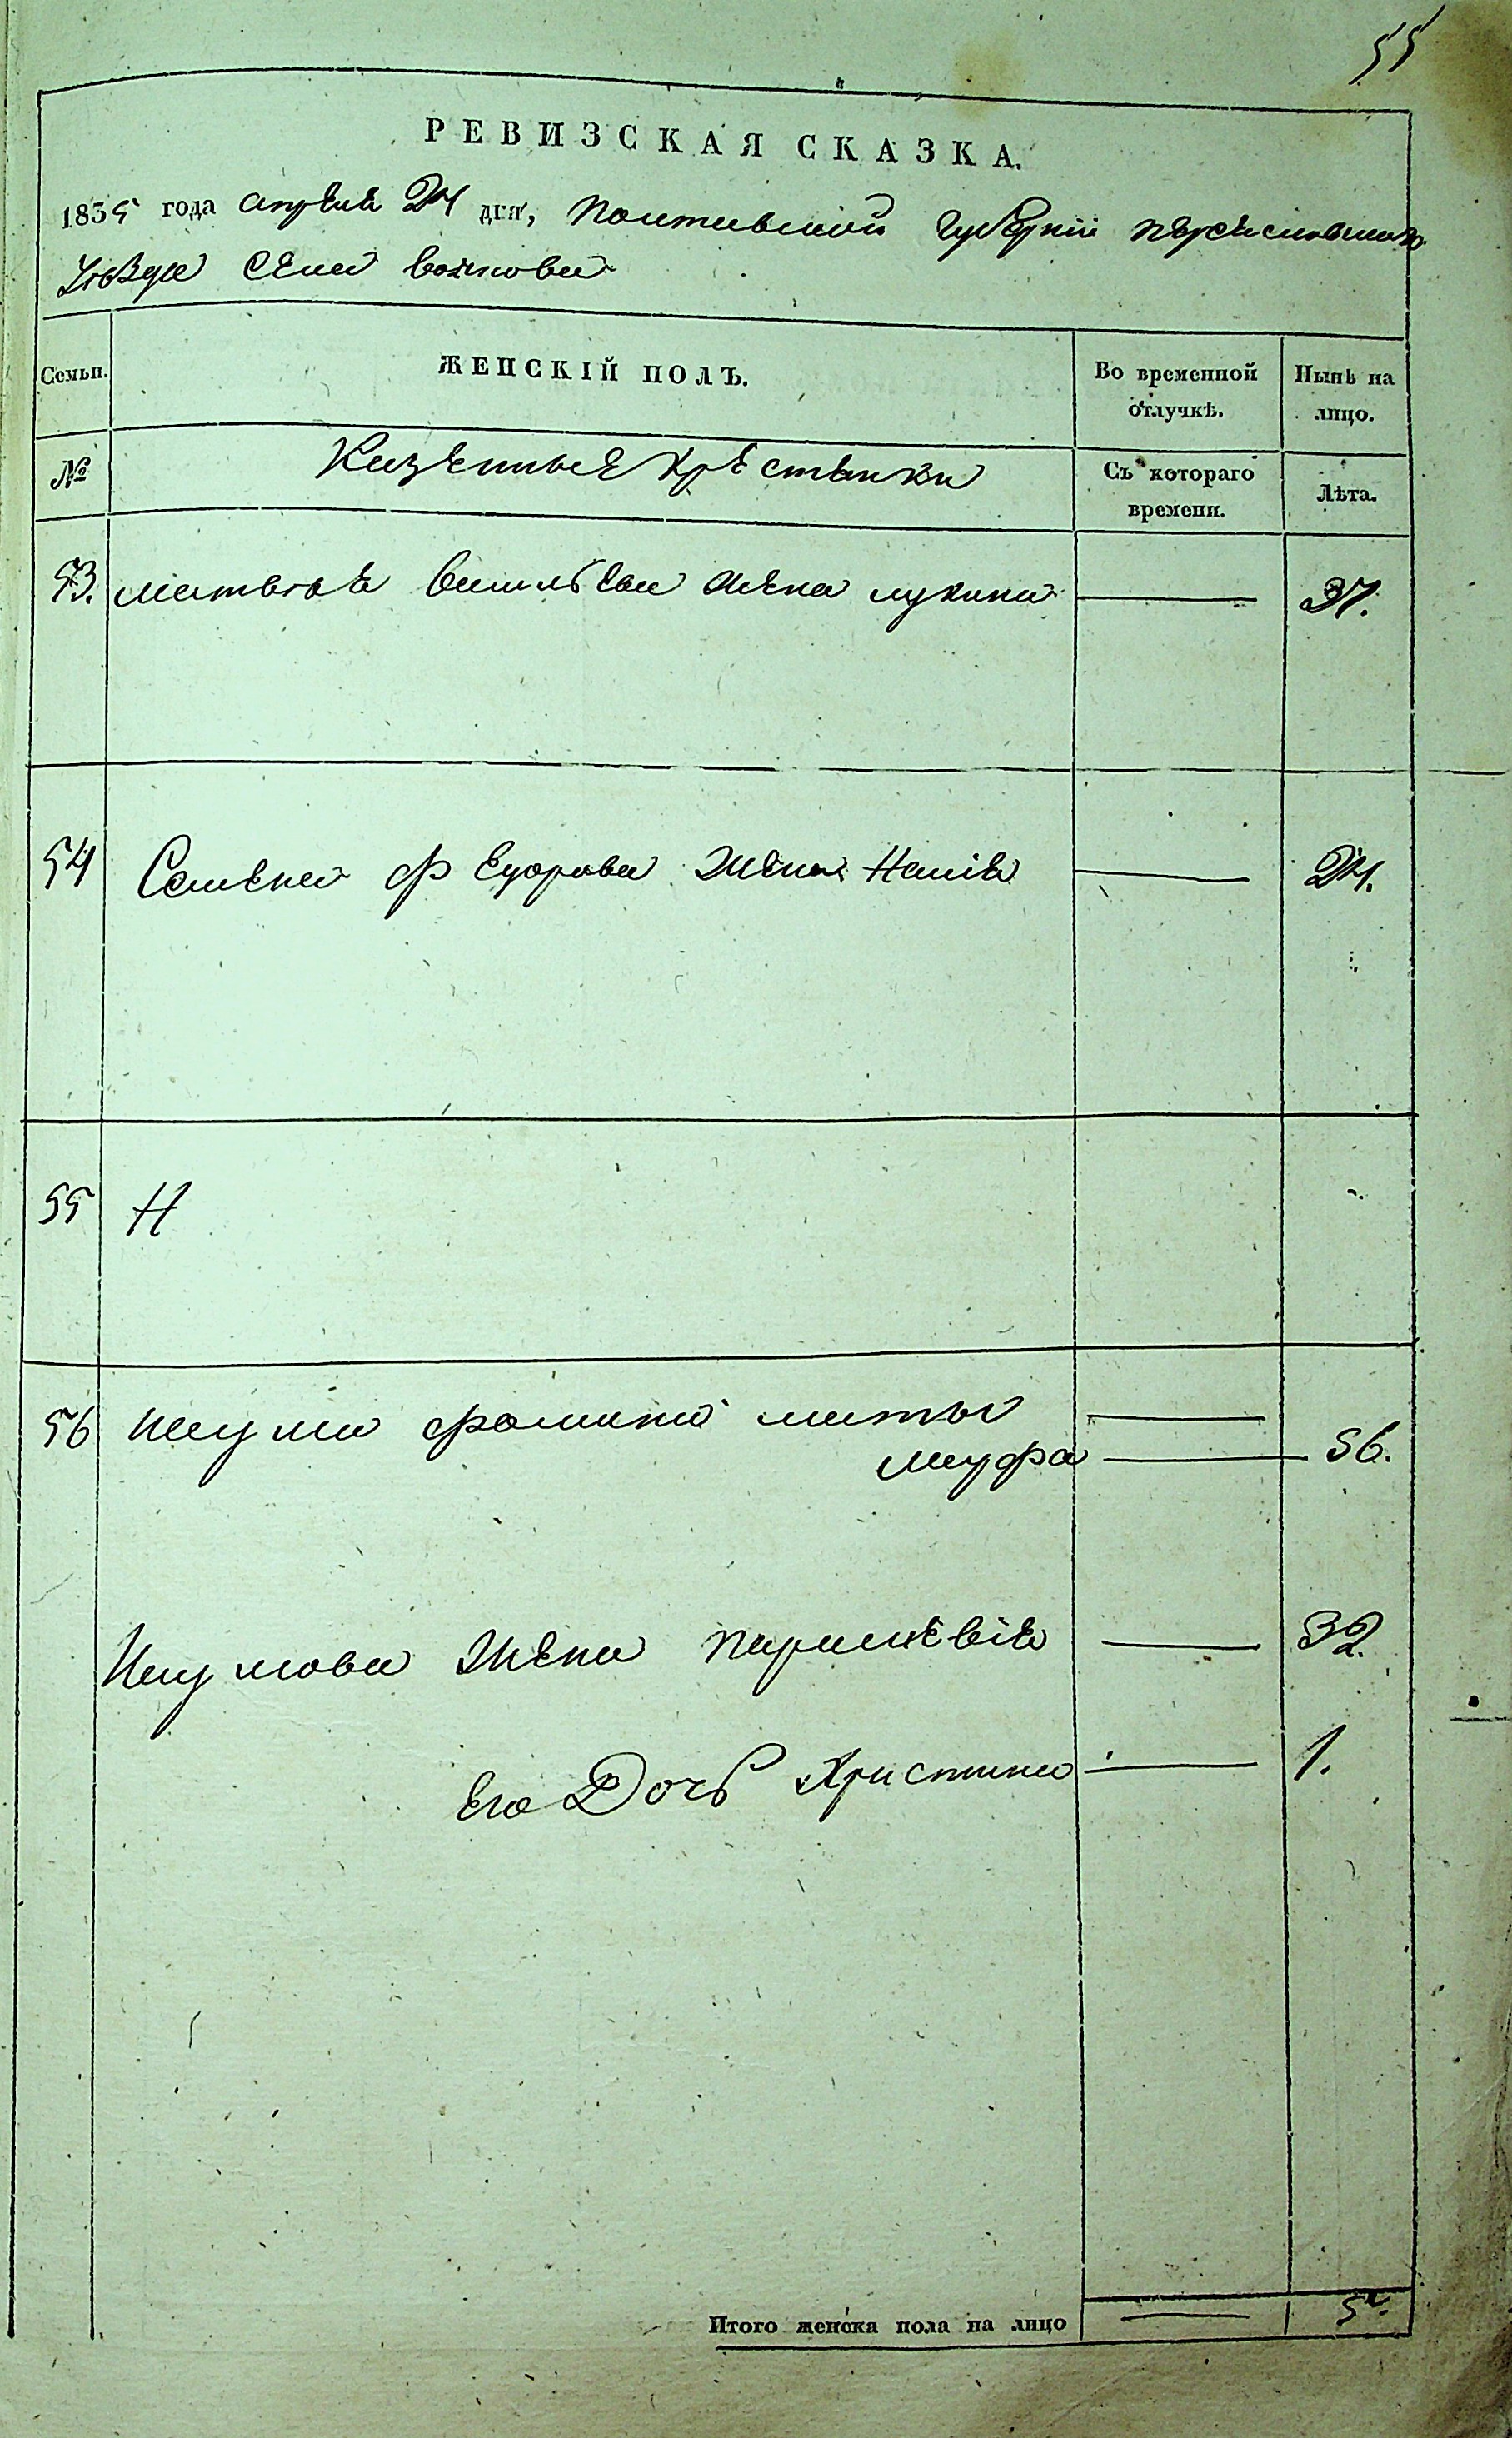 55
РЕВИЗСКАЯ СКАЗКА.
1835 года апреля 24 дня, Полтавской губернии переяславского
уезда села вовкова
Семьи. ЖЕНСКІЙ ПОЛЪ. Во временной отлучкѣ. Нынѣ на лицо.
№ Казенные крестянки Съ котораго времени. Лѣта.
53. матвея василева жена лукина 37.
54 Семена федорова жена Насия 24.
55 Н
56 наума фомина мать
мауфра 56.
Наумова жена параскевия 32.
его Дочь христина 1.
Итого женска пола на лицо 5.